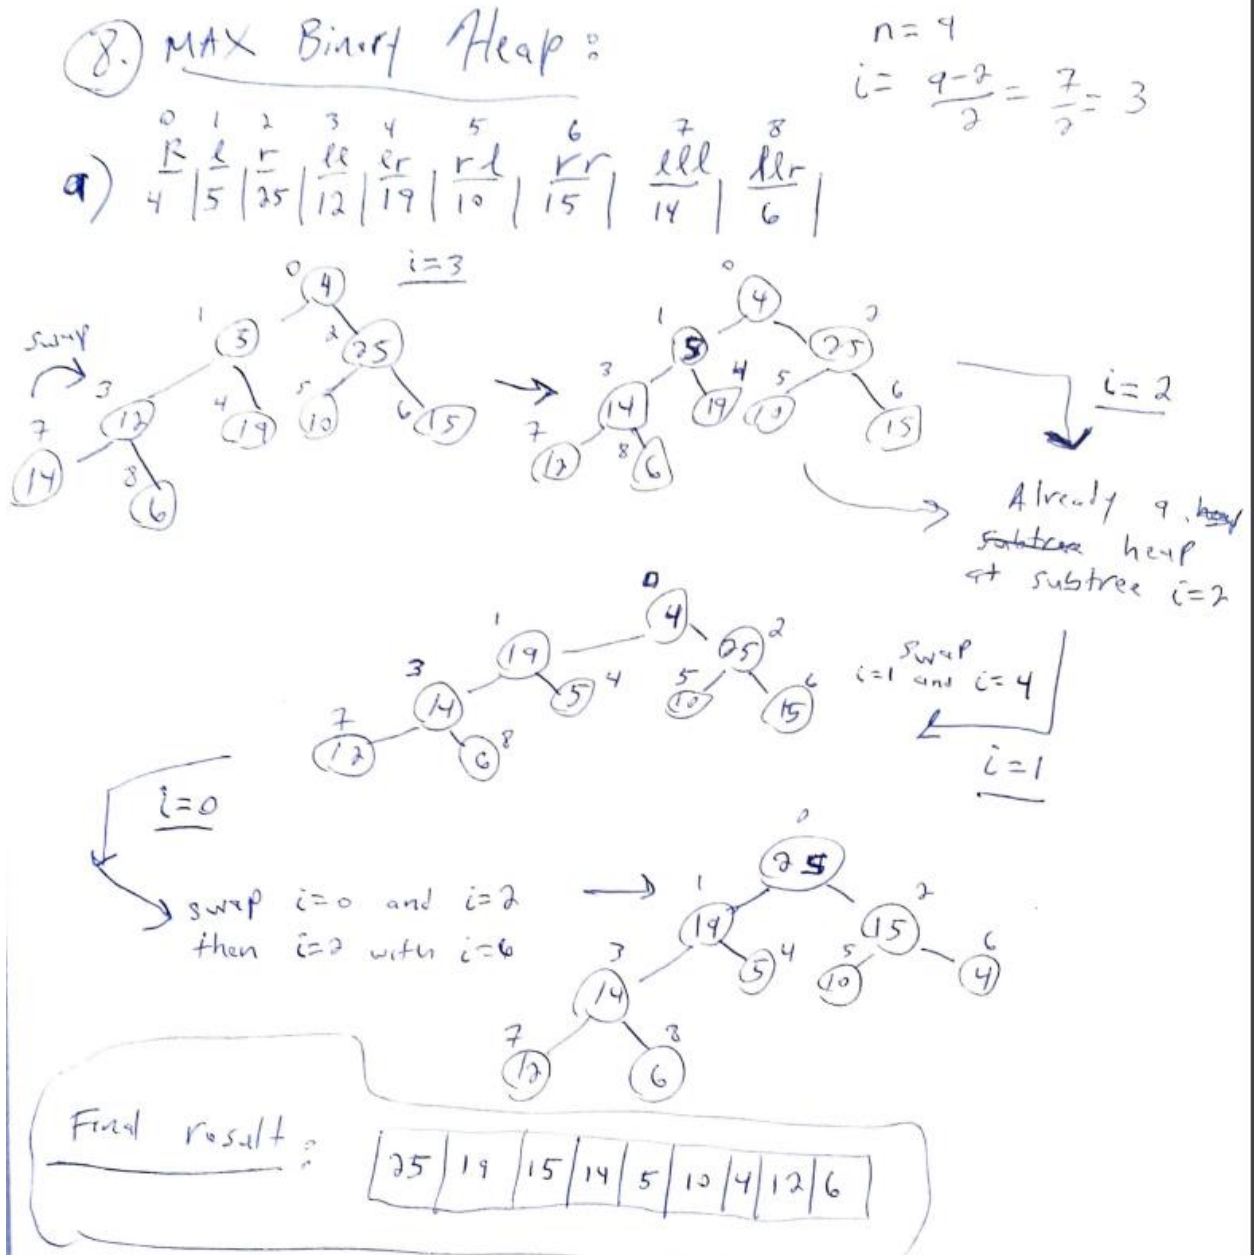 8. MAX Binary Heap:
n = 9
i = 9-2/2 = 7/2 = 3
0 1 2 3 4 5 6 7 8
R l r ll lr rl rr lll llr
a) 4 | 5 | 25 | 12 | 19 | 10 | 15 | 14 | 6 |
i=3
0 4
1 5 2 25
swap
3 12 4 19 5 10 6 15
7 14 8 6
0 4
1 5 2 25
3 14 4 19 5 10 6 15
7 12 8 6
i=2
Already a heap
subtree heap
at subtree i=2
0 4
1 19 2 25
3 14 5 4 5 10 6 15
7 12 6 8
swap
i=1 and i=4
i=1
i=0
swap i=0 and i=2
then i=2 with i=6
0 25
1 19 2 15
3 14 5 4 5 10 6 4
7 12 8 6
Final result:
25 | 19 | 15 | 14 | 5 | 10 | 4 | 12 | 6